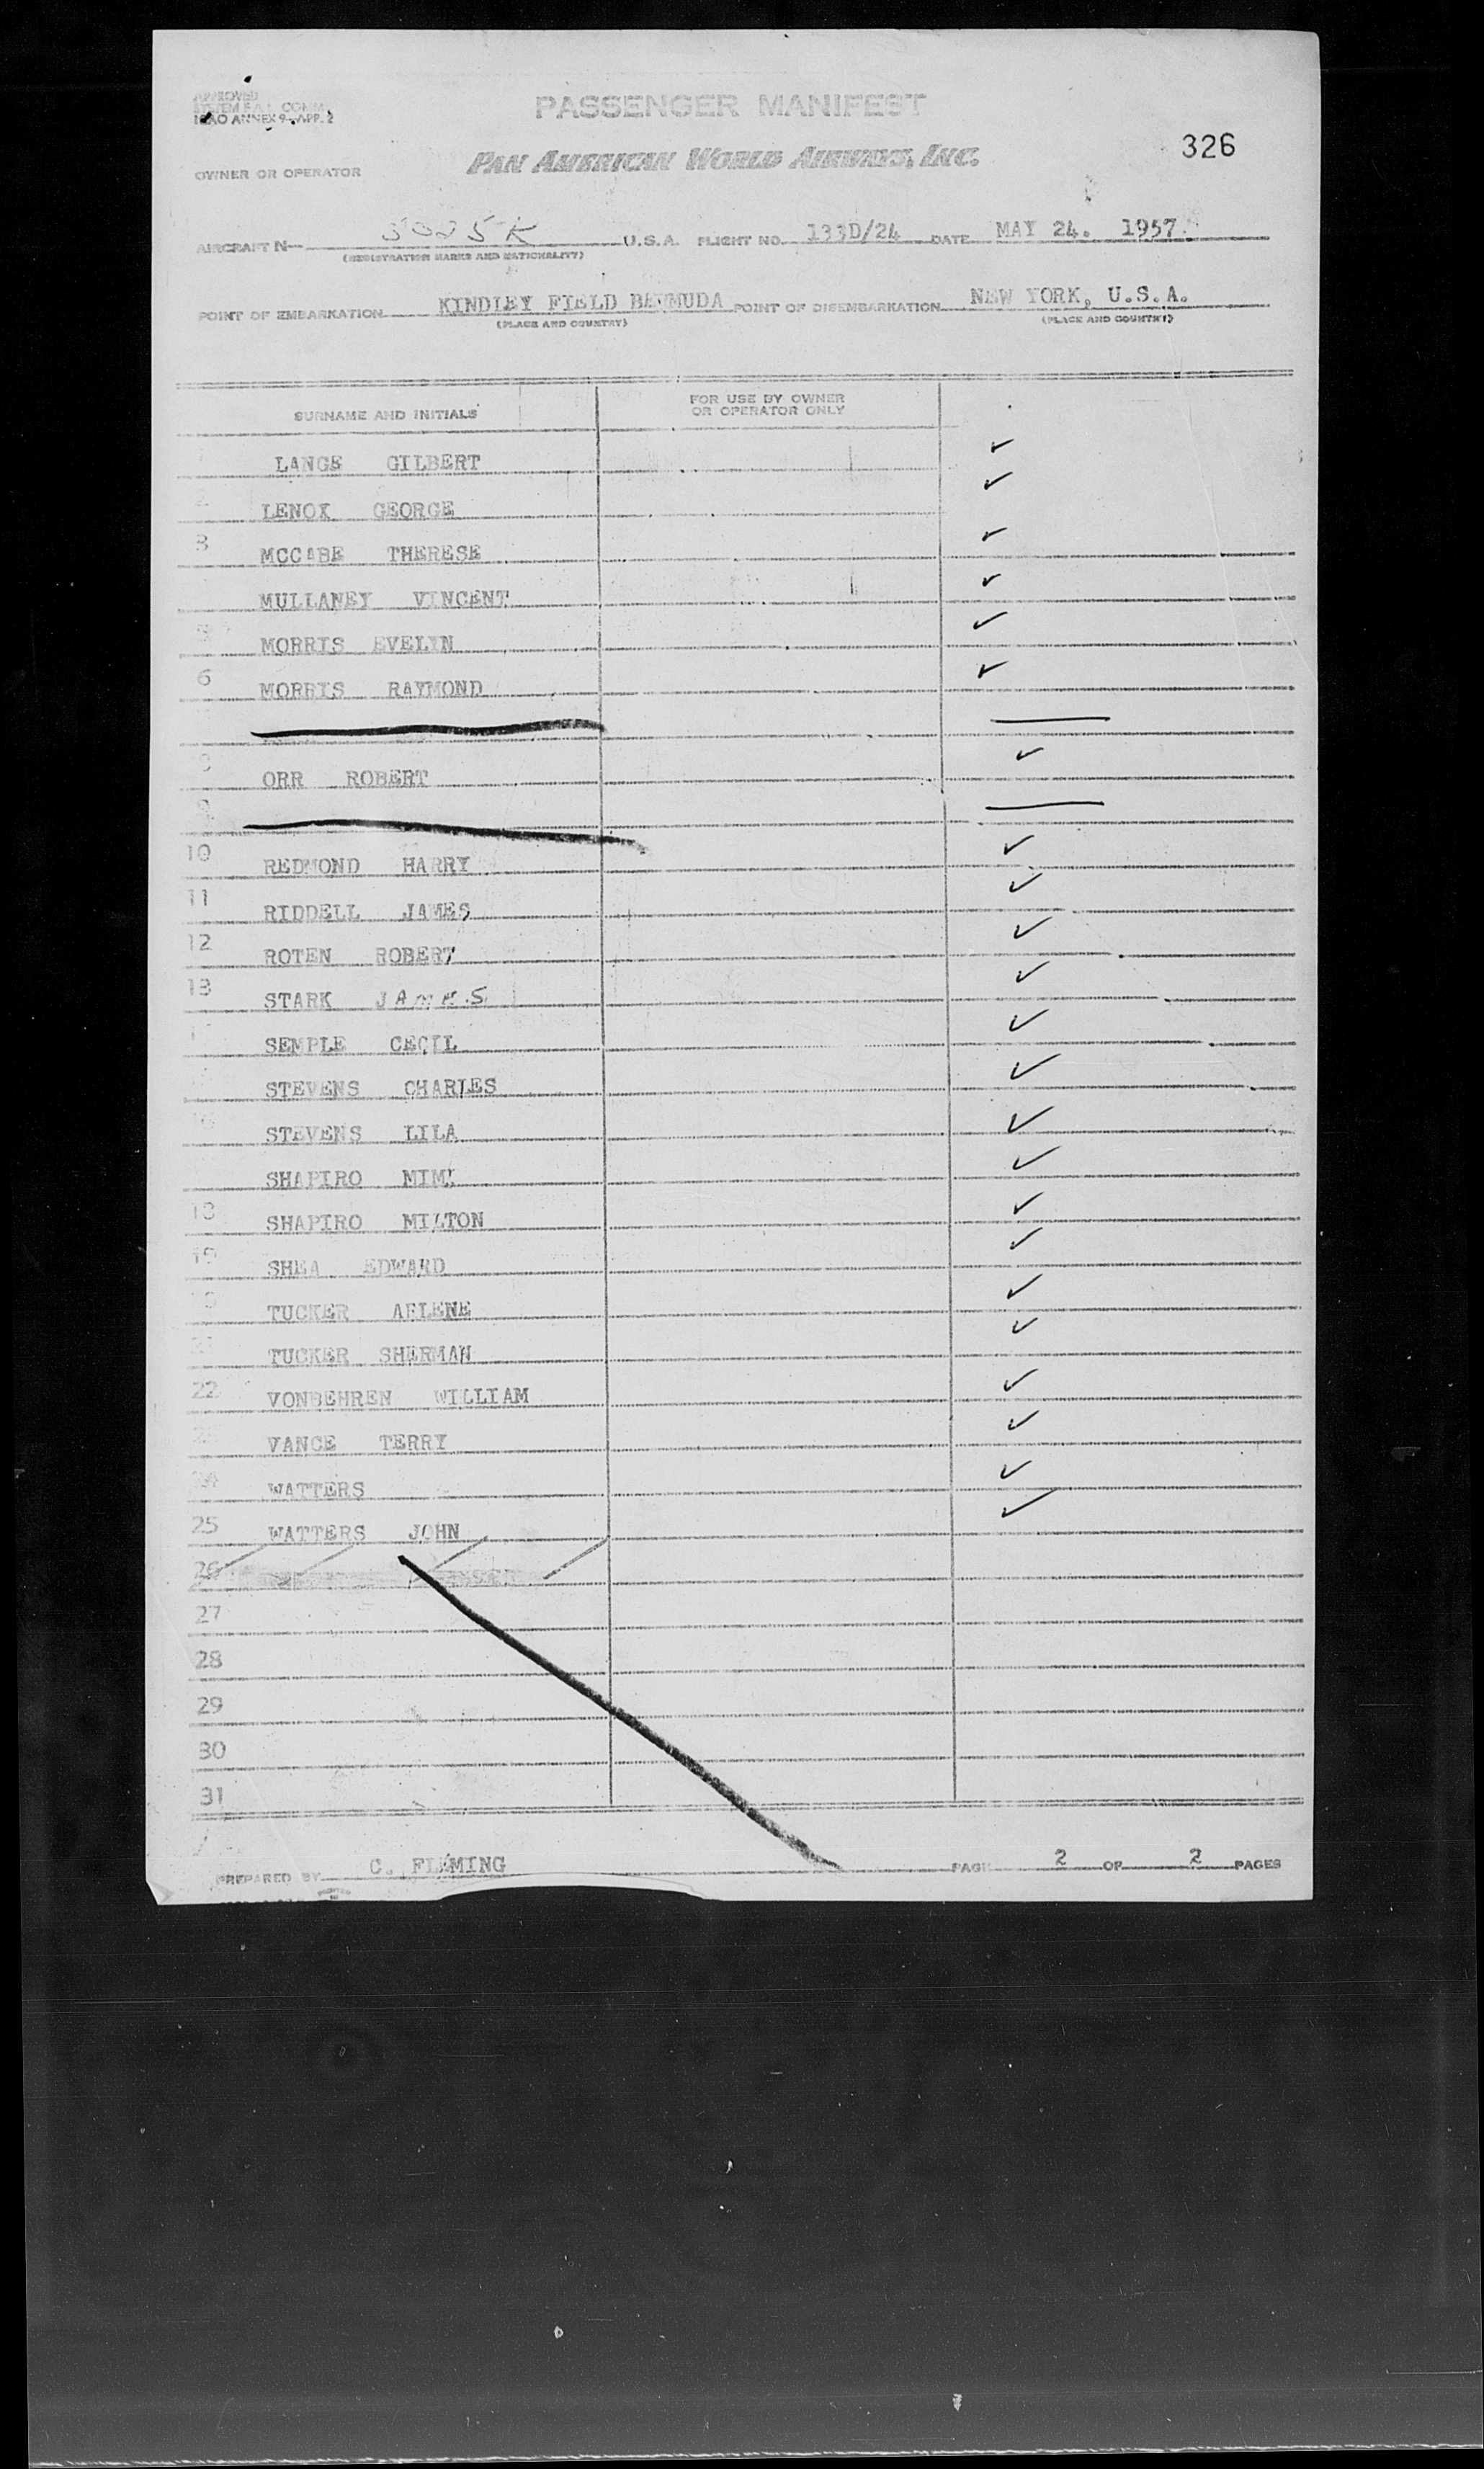 APPROVED
SYSTEM F.A.L. COMM.
ICAO ANNEX 9-APP. 2
PASSENGER MANIFEST
326
PAN AMERICAN WORLD AIRWAYS, INC.
OWNER OR OPERATOR
AIRCRAFT N— U.S.A. FLIGHT NO. 133D/24 DATE MAY 24. 1957.
(REGISTRATION MARKS AND NATIONALITY)
POINT OF EMBARKATION KINDLEY FIELD BERMUDA POINT OF DISEMBARKATION NEW YORK, U.S.A.
(PLACE AND COUNTRY) (PLACE AND COUNTRY)
SURNAME AND INITIALS FOR USE BY OWNER
OR OPERATOR ONLY
LANGE GILBERT ✓
LENOX GEORGE ✓
3 MCCABE THERESE ✓
MULLANEY VINCENT ✓
MORRIS EVELYN ✓
6 MORRIS RAYMOND ✓
8 ORR ROBERT ✓
9
10 REDMOND HARRY ✓
11 RIDDELL JAMES ✓
12 ROTEN ROBERT ✓
13 STARK JAMES ✓
SEMPLE CECIL ✓
STEVENS CHARLES ✓
STEVENS LILA ✓
SHAPIRO MIMI ✓
18 SHAPIRO MILTON ✓
19 SHEA EDWARD ✓
TUCKER ARLENE ✓
21 TUCKER SHERMAN ✓
22 VONBEHREN WILLIAM ✓
23 VANCE TERRY ✓
24 WATTERS ✓
25 WATTERS JOHN ✓
26
27
28
29
30
31
PREPARED BY C. FLEMING PAGE 2 OF 2 PAGES